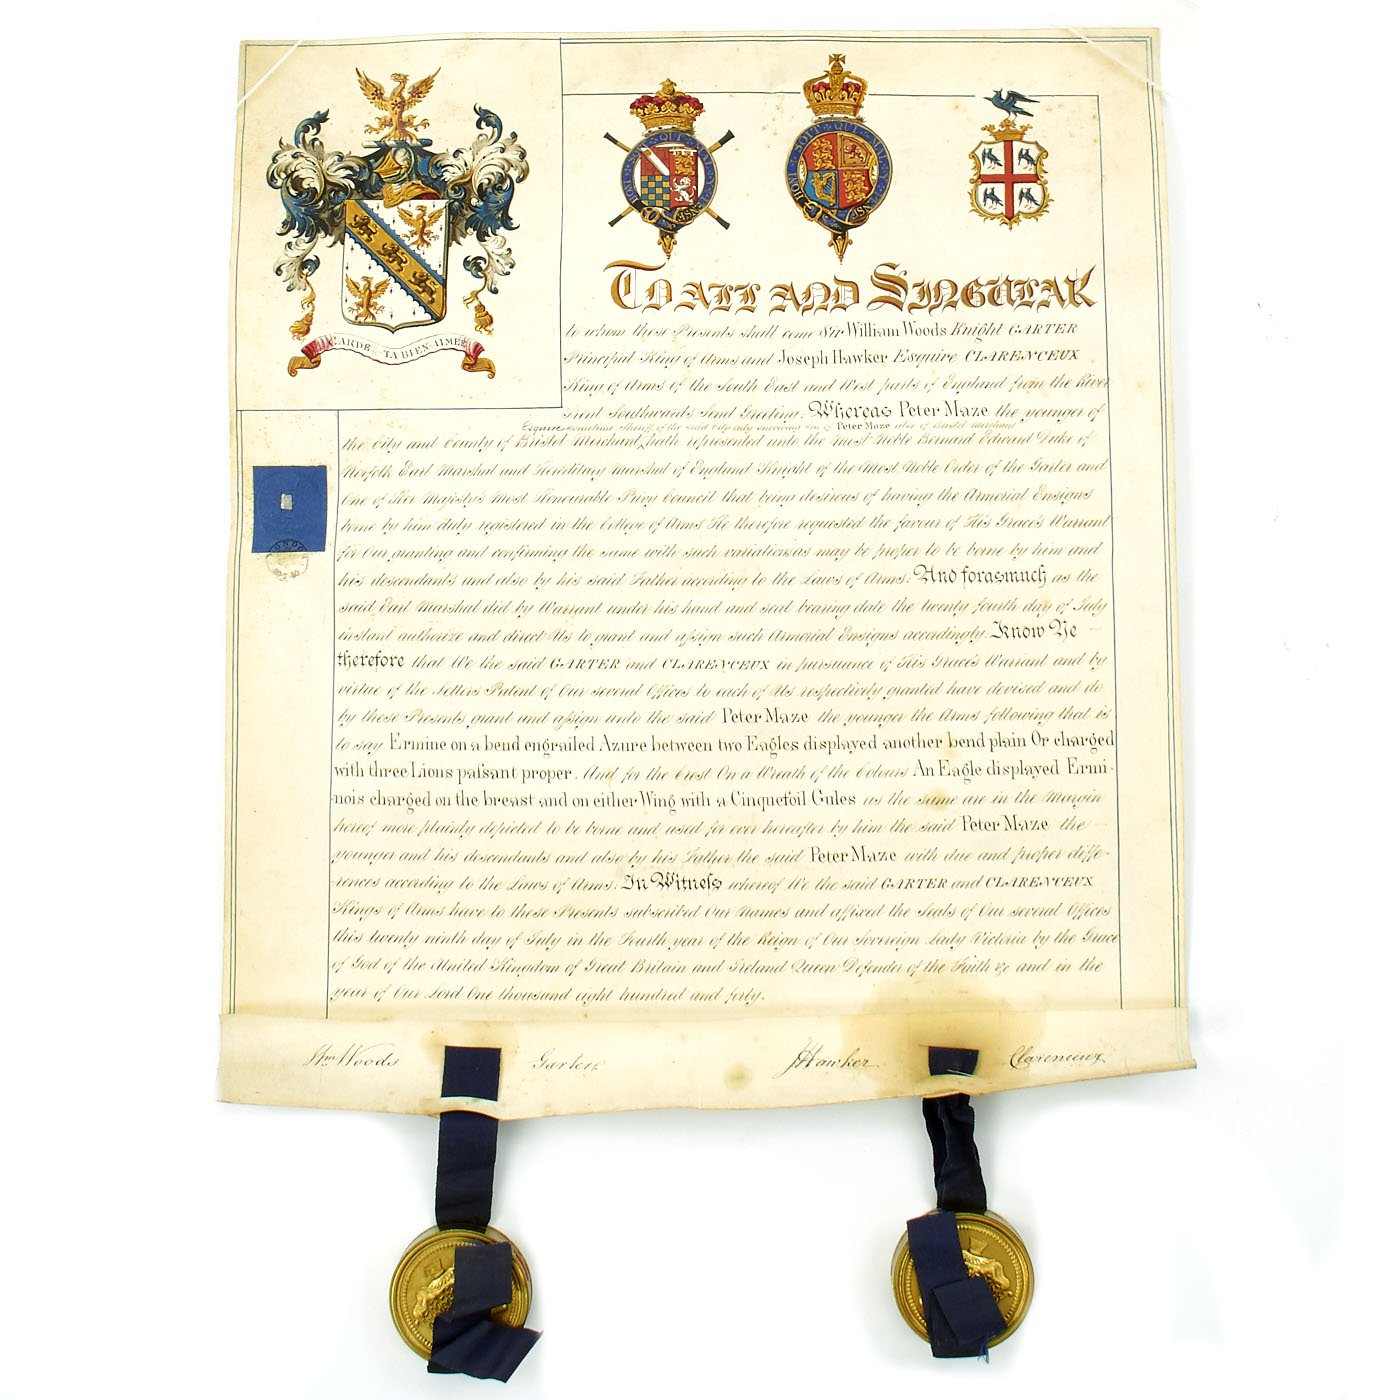 GARDE TA BIEN AIMÉE
HONI SOIT QUI MAL Y PENSE
HONI SOIT QUI MAL Y PENSE
TO ALL AND SINGULAR
to whom these Presents shall come Sir William Woods Knight GARTER
Principal King of Arms and Joseph Hawker Esquire CLARENCEUX
King of Arms of the South East and West parts of England from the River
Trent Southwards Send Greeting: Whereas Peter Maze the younger of
Esquire sometime Sheriff of the said City only surviving son of Peter Maze also of Bristol Merchant
the City and County of Bristol Merchant, hath represented unto the Most Noble Bernard Edward Duke of
Norfolk Earl Marshal and Hereditary Marshal of England Knight of the Most Noble Order of the Garter and
One of Her Majesty's Most Honourable Privy Council that being desirous of having the Armorial Ensigns
borne by him duly registered in the College of Arms He therefore requested the favour of His Grace's Warrant
for Our granting and confirming the same with such variations as may be proper to be borne by him and
his descendants and also by his said Father according to the Laws of Arms: And forasmuch as the
said Earl Marshal did by Warrant under his hand and seal bearing date the twenty fourth day of July
instant authorize and direct Us to grant and assign such Armorial Ensigns accordingly. Know Ye
therefore that We the said GARTER and CLARENCEUX in pursuance of His Grace's Warrant and by
virtue of the Letters Patent of Our several Offices to each of Us respectively granted have devised and do
by these Presents grant and assign unto the said Peter Maze the younger the Arms following that is
to say Ermine on a bend engrailed Azure between two Eagles displayed another bend plain Or charged
with three Lions passant proper. And for the Crest On a Wreath of the Colours An Eagle displayed Ermi-
-nois charged on the breast and on either Wing with a Cinquefoil Gules as the same are in the Margin
hereof more plainly depicted to be borne and used for ever hereafter by him the said Peter Maze the
younger and his descendants and also by his Father the said Peter Maze with due and proper diffe-
-rences according to the Laws of Arms: In Witness whereof We the said GARTER and CLARENCEUX
Kings of Arms have to these Presents subscribed Our Names and affixed the Seals of Our several Offices
this twenty ninth day of July in the Fourth year of the Reign of Our Sovereign Lady Victoria by the Grace
of God of the United Kingdom of Great Britain and Ireland Queen Defender of the Faith &c and in the
year of Our Lord One thousand eight hundred and forty.
Wm Woods Garter
J Hawker Clarenceux